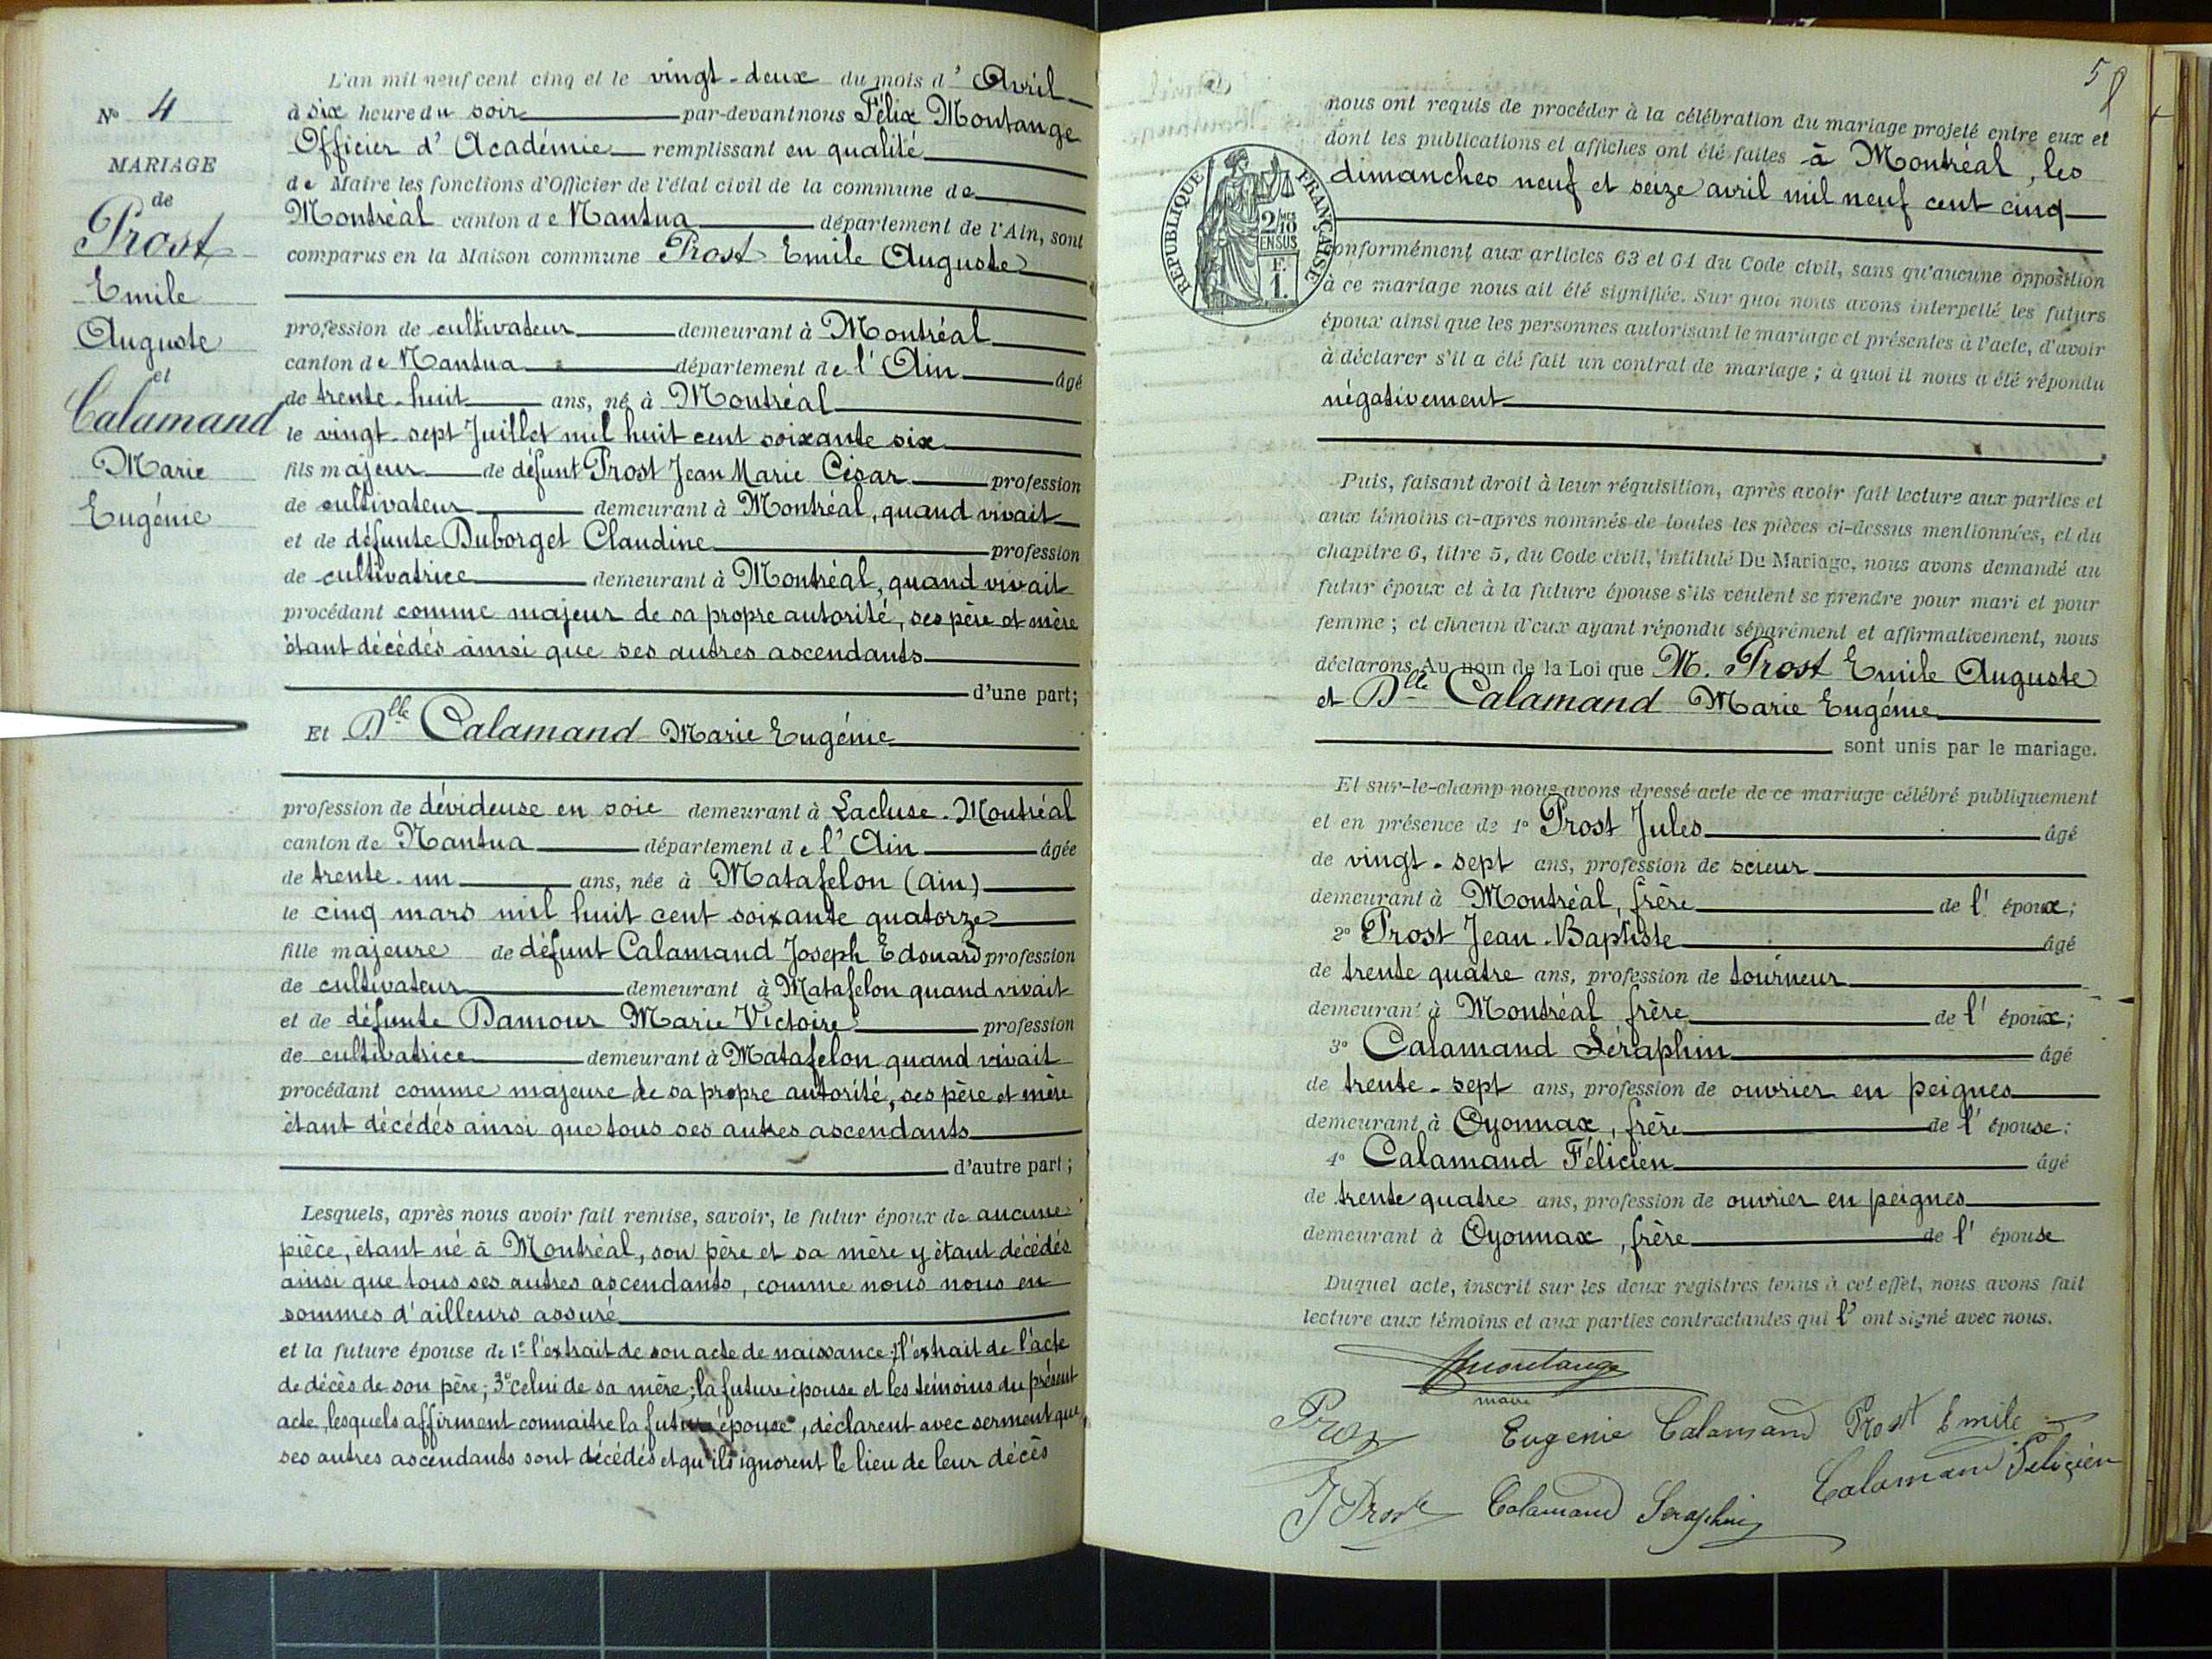 L'an mil neuf cent cinq et le vingt-deux du mois d'Avril
N° 4
à six heure du soir par-devant nous Félix Montange
Officier d'Académie remplissant en qualité
MARIAGE
de Maire les fonctions d'Officier de l'état civil de la commune de
de
Montréal canton de Nantua département de l'Ain, sont
Prost
comparus en la Maison commune Prost Emile Auguste
Emile
Auguste
profession de cultivateur demeurant à Montréal
canton de Nantua département de l'Ain âgé
et
de trente-huit ans, né à Montréal
Calamand
le vingt-sept Juillet mil huit cent soixante six
Marie
fils majeur de défunt Prost Jean Marie César profession
Eugénie
de cultivateur demeurant à Montréal, quand vivait
et de défunte Duborget Claudine profession
de cultivatrice demeurant à Montréal, quand vivait
procédant comme majeur de sa propre autorité, ses père et mère
étant décédés ainsi que ses autres ascendants
d'une part;
Et Dlle Calamand Marie Eugénie
profession de dévideuse en soie demeurant à Lacluse-Montréal
canton de Nantua département de l'Ain âgée
de trente-un ans, née à Matafelon (Ain)
le cinq mars mil huit cent soixante quatorze
fille majeure de défunt Calamand Joseph Edouard profession
de cultivateur demeurant à Matafelon quand vivait
et de défunte Damour Marie Victoire profession
de cultivatrice demeurant à Matafelon quand vivait
procédant comme majeure de sa propre autorité, ses père et mère
étant décédés ainsi que tous ses autres ascendants
d'autre part;
Lesquels, après nous avoir fait remise, savoir, le futur époux de aucune
pièce, étant né à Montréal, son père et sa mère y étant décédés
ainsi que tous ses autres ascendants, comme nous nous en
sommes d'ailleurs assuré
et la future épouse de 1° l'extrait de son acte de naissance; l'extrait de l'acte
de décès de son père; 3° celui de sa mère; la future épouse et les témoins du présent
acte, lesquels affirment connaitre la future épouse, déclarent avec serment que
ses autres ascendants sont décédés et qu'ils ignorent le lieu de leur décès
58
nous ont requis de procéder à la célébration du mariage projeté entre eux et
dont les publications et affiches ont été faites à Montréal, les
dimanches neuf et seize avril mil neuf cent cinq
RÉPUBLIQUE FRANÇAISE
2/10
EN SUS
F.
1.
conformément aux articles 63 et 64 du Code civil, sans qu'aucune opposition
à ce mariage nous ait été signifiée. Sur quoi nous avons interpellé les futurs
époux ainsi que les personnes autorisant le mariage et présentes à l'acte, d'avoir
à déclarer s'il a été fait un contrat de mariage; à quoi il nous a été répondu
négativement
Puis, faisant droit à leur réquisition, après avoir fait lecture aux parties et
aux témoins ci-après nommés de toutes les pièces ci-dessus mentionnées, et du
chapitre 6, titre 5, du Code civil, intitulé Du Mariage, nous avons demandé au
futur époux et à la future épouse s'ils veulent se prendre pour mari et pour
femme; et chacun d'eux ayant répondu séparément et affirmativement, nous
déclarons Au nom de la Loi que M. Prost Emile Auguste
et Dlle Calamand Marie Eugénie
sont unis par le mariage.
Et sur-le-champ nous avons dressé acte de ce mariage célébré publiquement
et en présence de 1° Prost Jules âgé
de vingt-sept ans, profession de scieur
demeurant à Montréal, frère de l'époux;
2° Prost Jean-Baptiste âgé
de trente quatre ans, profession de tourneur
demeurant à Montréal frère de l'époux;
3° Calamand Séraphin âgé
de trente-sept ans, profession de ouvrier en peignes
demeurant à Oyonnax, frère de l'épouse;
4° Calamand Félicien âgé
de trente quatre ans, profession de ouvrier en peignes
demeurant à Oyonnax, frère de l'épouse
Duquel acte, inscrit sur les deux registres tenus à cet effet, nous avons fait
lecture aux témoins et aux parties contractantes qui l'ont signé avec nous.
Montange
maire
Prost Eugenie Calamand Prost Emile
J Prost Calamand Seraphin Calamand Feliçien